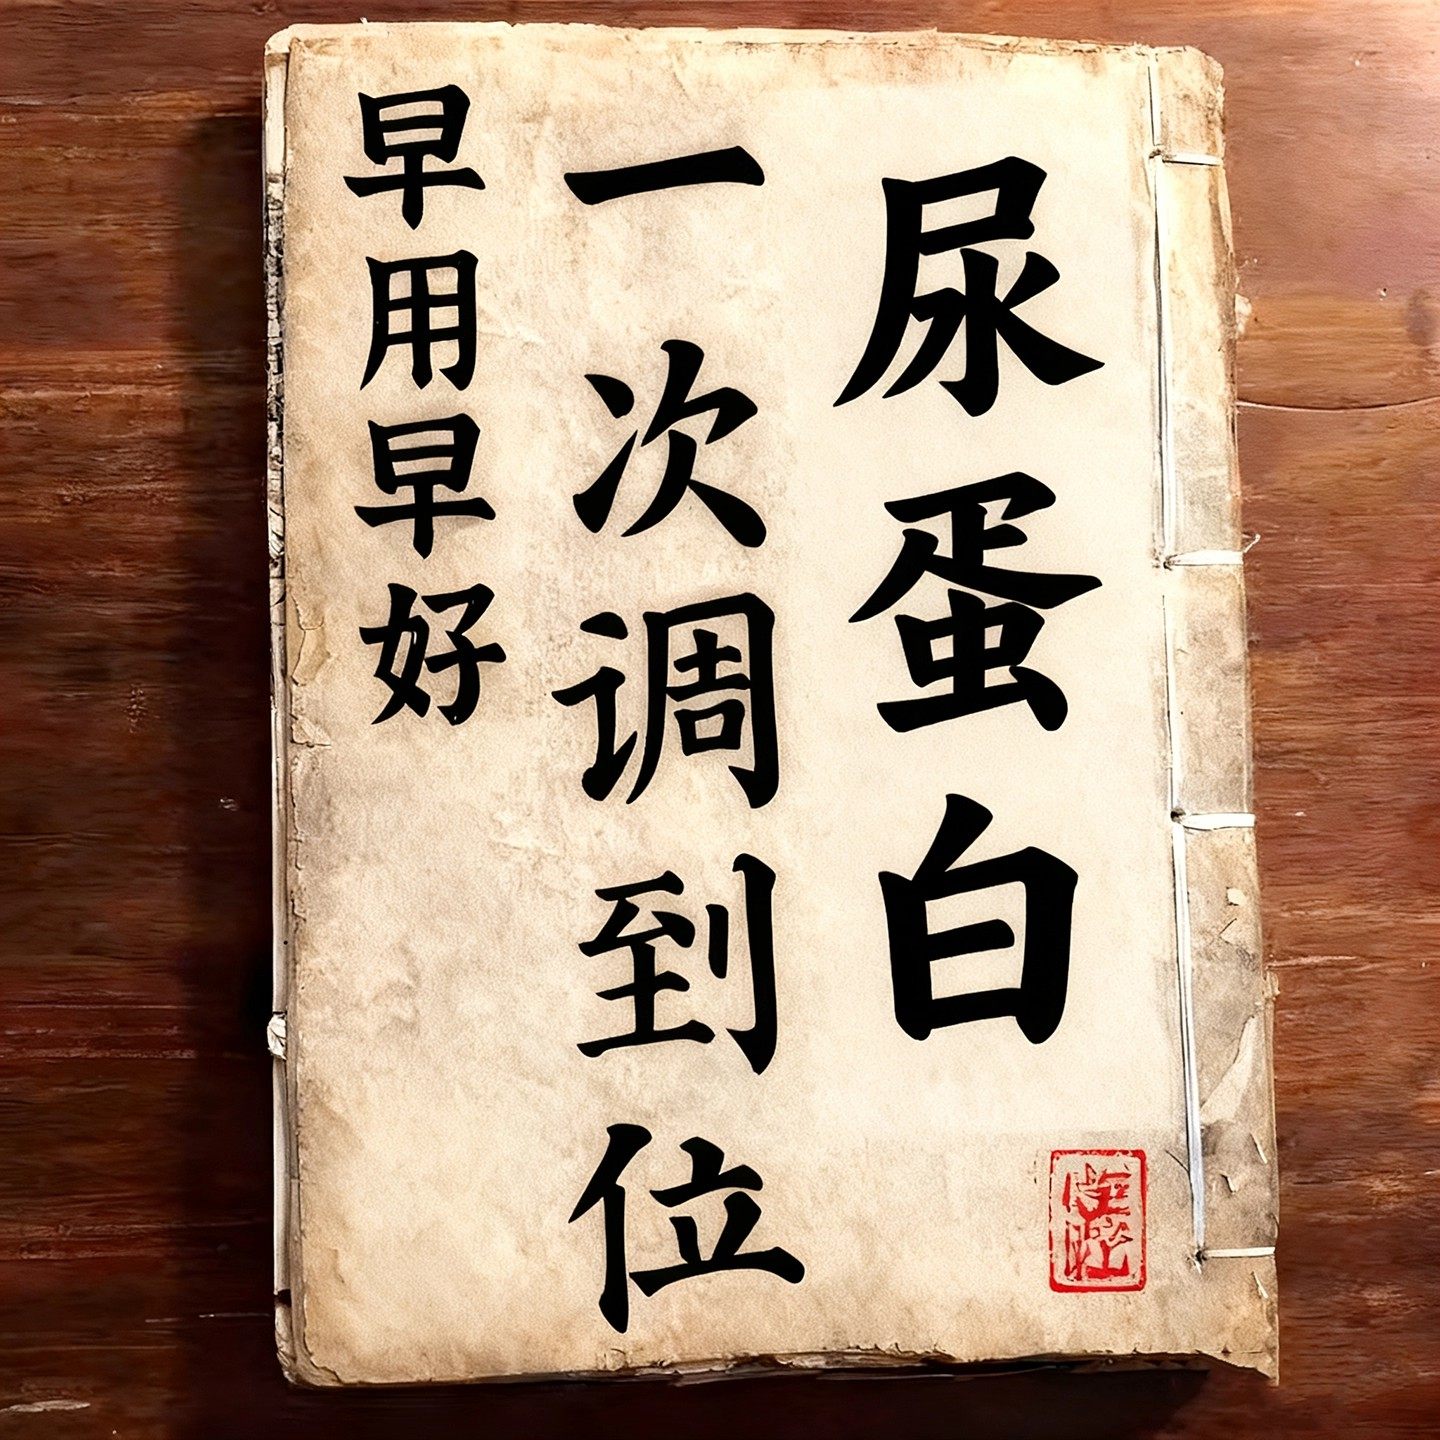 尿蛋白
一次调到位
早用早好